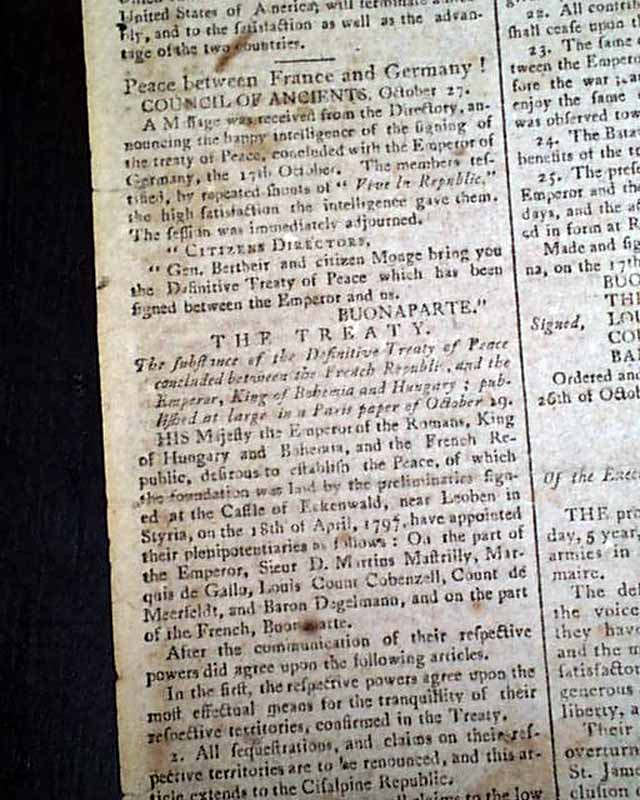 United States of America, will terminate
bly, and to the satisfaction as well as the advan-
tage of the two countries.
Peace between France and Germany !
COUNCIL OF ANCIENTS, October 27.
A Message was received from the Directory, an-
nouncing the happy intelligence of the signing of
the treaty of Peace, concluded with the Emperor of
Germany, the 17th October. The members tes-
tified, by repeated shouts of " Vive la Republic,"
the high satisfaction the intelligence gave them.
The session was immediately adjourned.
" CITIZENS DIRECTORS,
" Gen. Bertheir and citizen Monge bring you
the Definitive Treaty of Peace which has been
signed between the Emperor and us.
BUONAPARTE."
THE TREATY.
The substance of the Definitive Treaty of Peace
concluded between the French Republic, and the
Emperor, King of Bohemia and Hungary ; pub-
lished at large in a Paris paper of October 29.
HIS Majesty the Emperor of the Romans, King
of Hungary and Bohemia, and the French Re-
public, desirous to establish the Peace, of which
the foundation was laid by the preliminaries sign-
ed at the Castle of Eckenwald, near Leoben in
Styria, on the 18th of April, 1797, have appointed
their plenipotentiaries as follows : On the part of
the Emperor, Sieur D. Martius Mastrilly, Mar-
quis de Gallo, Louis Count Cobenzell, Count de
Meerfeldt, and Baron Degelmann, and on the part
of the French, Buonaparte.
After the communication of their respective
powers did agree upon the following articles.
In the first, the respective powers agree upon the
most effectual means for the tranquillity of their
respective territories, confirmed in the Treaty.
2. All sequestrations, and claims on their res-
pective territories are to be renounced, and this ar-
ticle extends to the Cisalpine Republic.
claims to the low
22. All contri
shall cease upon t
23. The same
tween the Empero
fore the war
enjoy the same
was observed tow
24. The Bata
benefits of the
25. The prese
Emperor and the
days, and the
ed in form at R
Made and sig
na, on the 17th
BUO
TH
Signed, LOU
COU
BA
Ordered and
26th of Octob
Of the Exec
THE pro
day, 5 year,
armies in
maire.
The def
the voice
they have
and the m
satisfactor
generous
liberty, a
Their
overturn
St. Jame
clusion